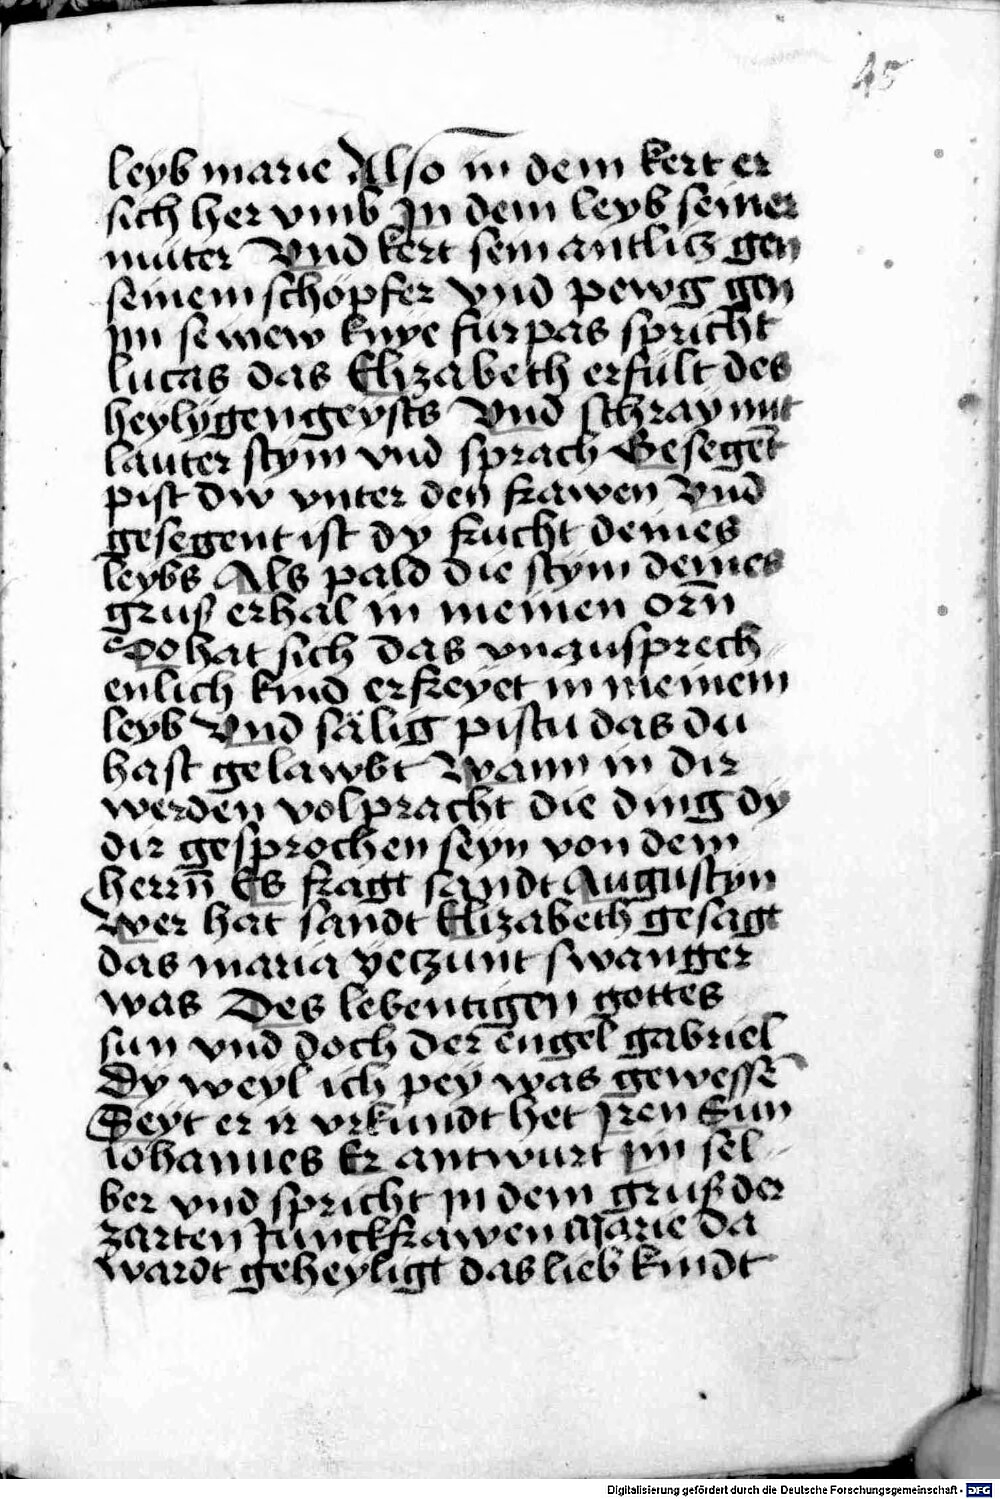 45
leyb marie Also in dem kert er
sich her vmb In dem leyb seiner
muter Vnd kert sein antlicz gen
seinem schöpfer vnd pewg gen
im se wew knye fürpas spricht
lucas das Elizabeth erfült des
heylygen geysts Vnd schray mit
lauter stym vnd sprach Gesegēt
pist dw vnter den frawen Vnd
gesegent ist dy frucht deines
leybs Als pald die stym deines
gruß erhal in meinen orn̄
Do hat sich das vnausprech
enlich kind erfreyet in meinem
leyb Vnd sälig pistu das du
hast gelawbt Wann in dir
werden volpracht die ding dy
dir gesprochen seyn von dem
herrn̄ Es fragt sandt Augustyn
Wer hat sandt Elizabeth gesagt
das maria yeczunt swanger
was Des lebentigen gottes
sun vnd doch der engel gabriel
Dy weyl ich pey was gewessē
Seyt er ir vrkundt het Iren Sun
iohannes Er antwurt im sel
ber vnd spricht In dem gruß der
zarten Junckfrawen Marie da
wardt geheyligt das lieb kindt
Digitalisierung gefördert durch die Deutsche Forschungsgemeinschaft - DFG